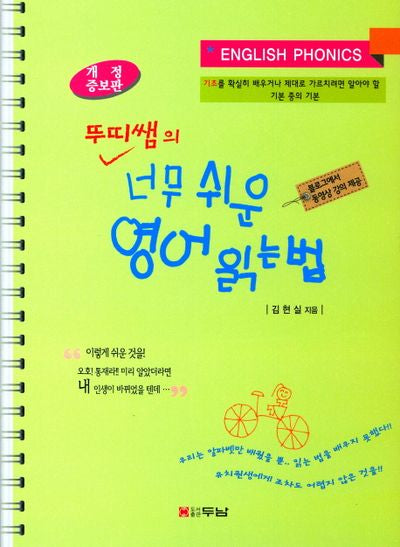 * ENGLISH PHONICS
기초를 확실히 배우거나 제대로 가르치려면 알아야 할
기본 중의 기본
개 정
증보판
뚜띠쌤의
너무 쉬운
영어 읽는 법
블로그에서
동영상 강의 제공
| 김 현 실 지음 |
“ 이렇게 쉬운 것을!
오호! 통재라!! 미리 알았더라면
내 인생이 바뀌었을 텐데 … ”
우리는 알파벳만 배웠을 뿐.. 읽는 법을 배우지 못했다!!
유치원생에게 조차도 어렵지 않은 것을!!
도서출판 두남